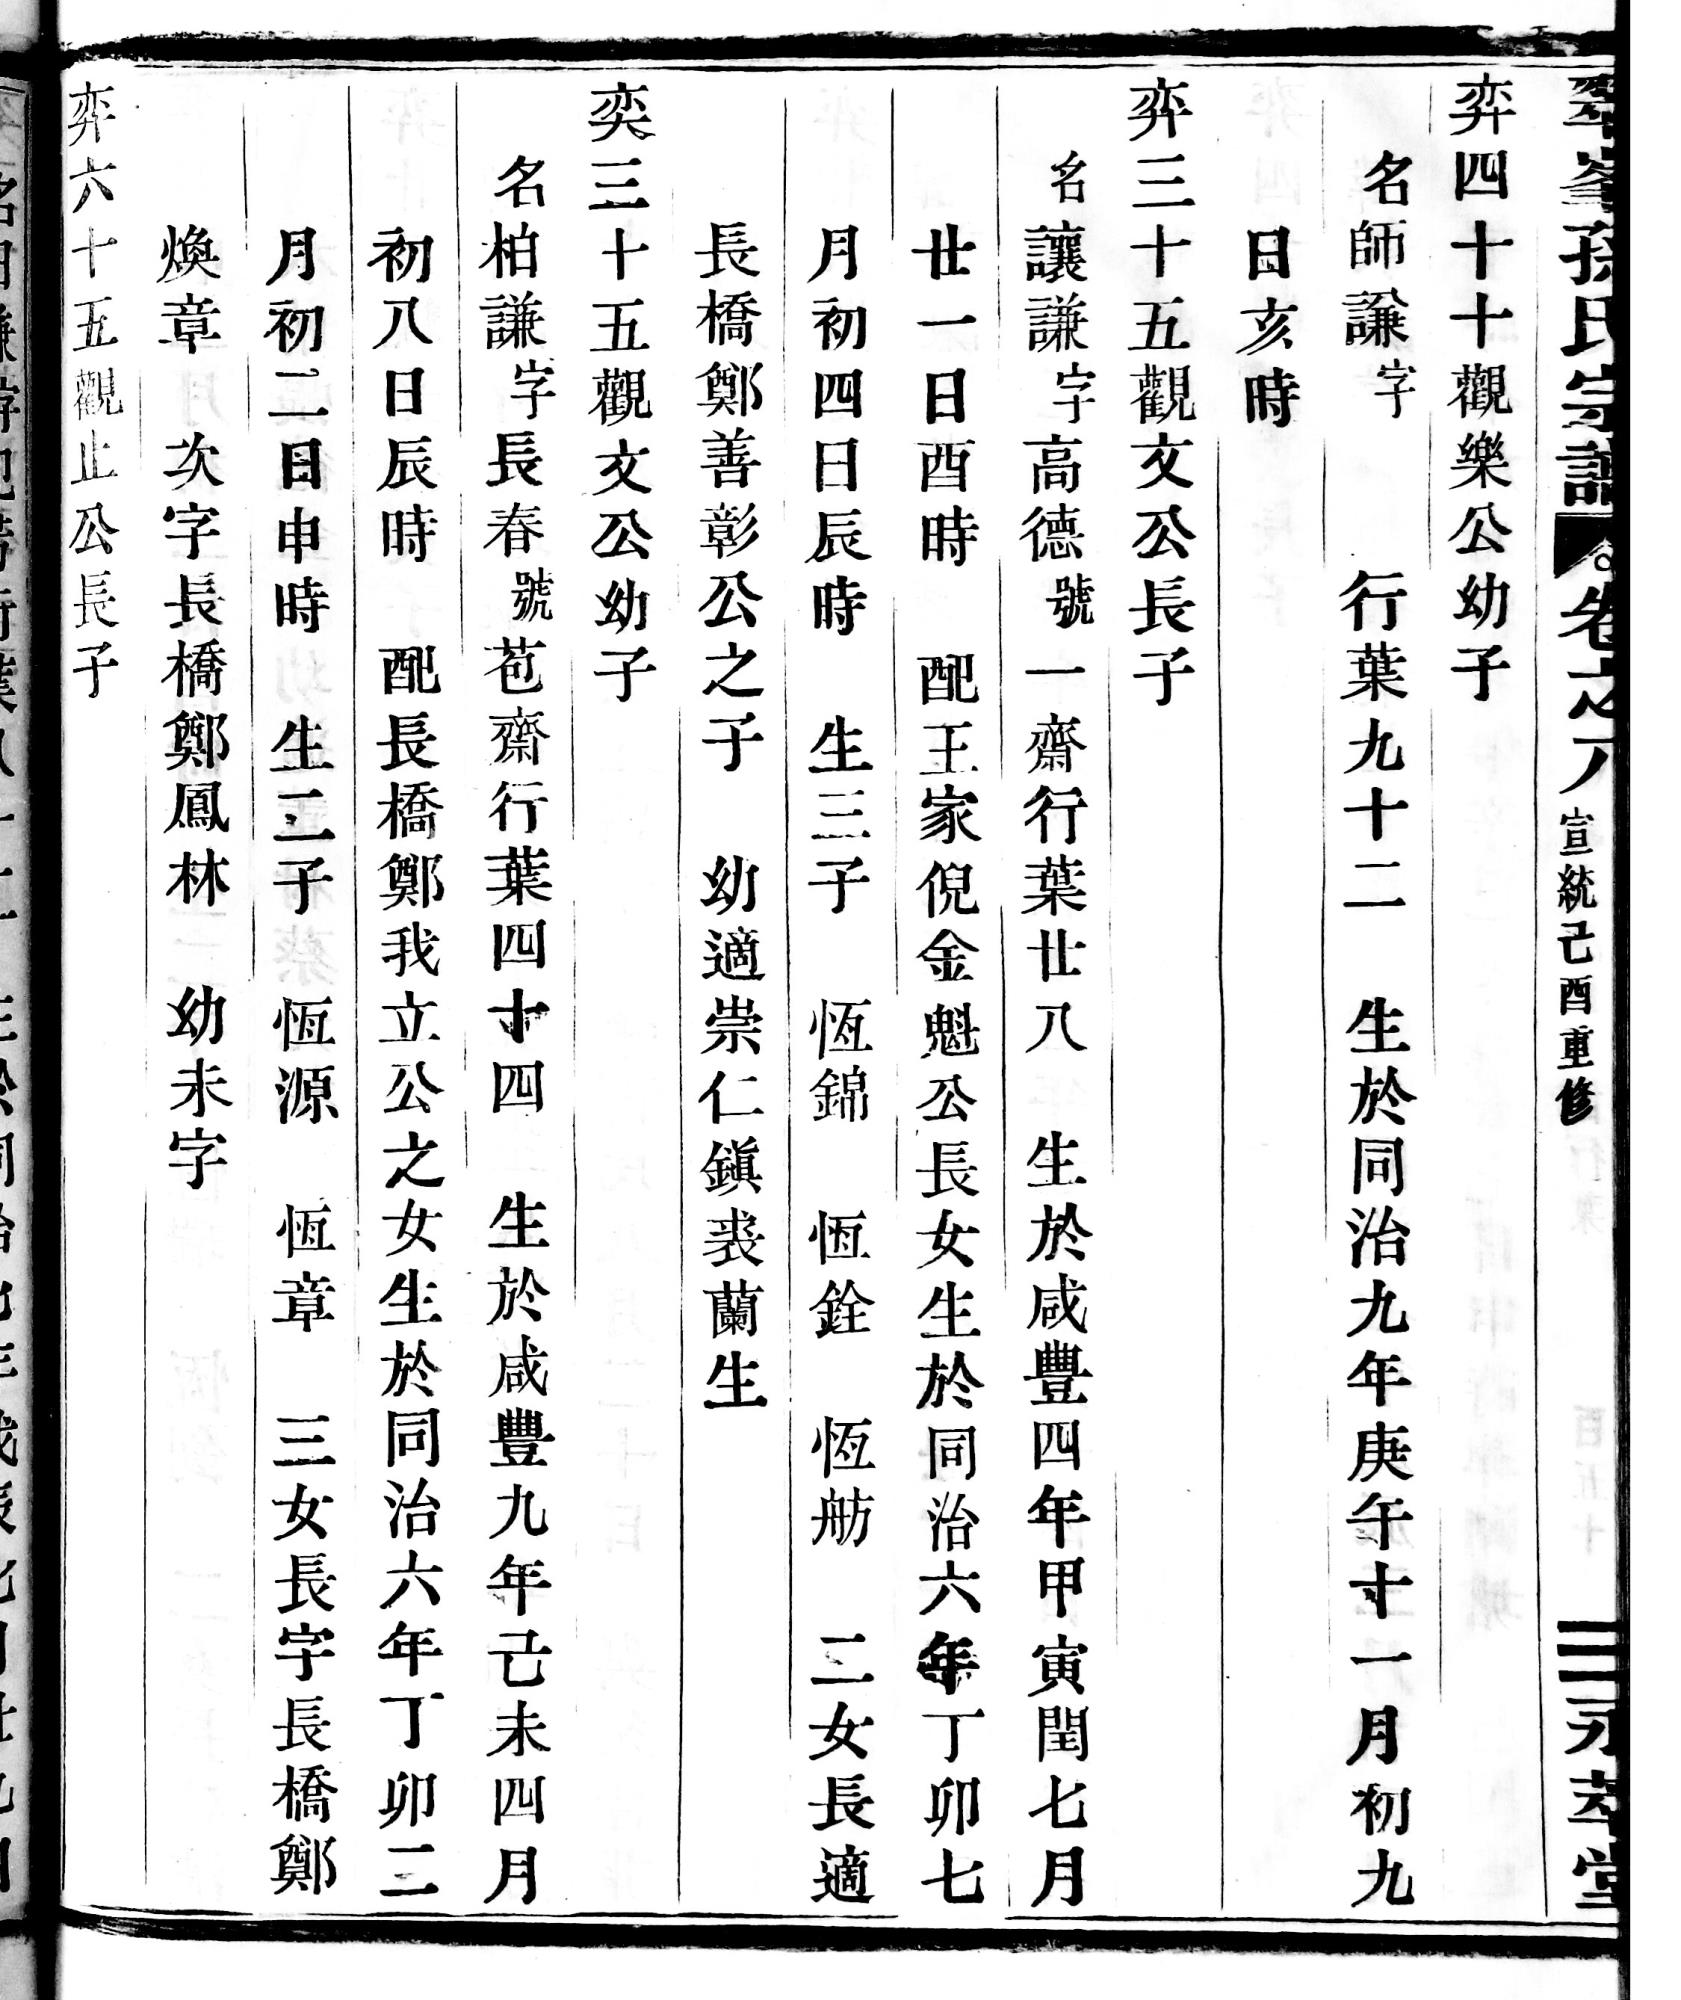 孫氏宗譜 卷之八 宣統己酉重修 永萃堂
弈四十十觀樂公幼子
名師謙字 行葉九十二 生於同治九年庚午十一月初九
日亥時
弈三十五觀文公長子
名讓謙字高德號一齋行葉廿八 生於咸豐四年甲寅閏七月
廿一日酉時 配王家倪金魁公長女生於同治六年丁卯七
月初四日辰時 生三子 恆錦 恆銓 恆舫 二女長適
長橋鄭善彰公之子 幼適崇仁鎭裘蘭生
奕三十五觀文公幼子
名柏謙字長春號苞齋行葉四十四 生於咸豐九年己未四月
初八日辰時 配長橋鄭我立公之女生於同治六年丁卯二
月初二日申時 生二子 恆源 恆章 三女長字長橋鄭
煥章 次字長橋鄭鳳林 幼未字
弈六十五觀止公長子